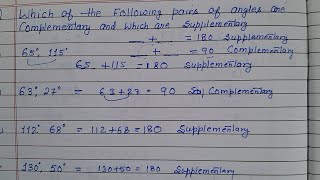 Which of the Following pairs of angles are
Complementary and Which are Supplementary
__ + __ = 180 Supplementary
65°, 115° __ + __ = 90 Complementary
65 + 115 = 180 Supplementary
63°, 27° = 63+27 = 90 Complementary
112° 68° = 112+68 = 180 Supplementary
130°, 50° = 130+50 = 180 Supplementary